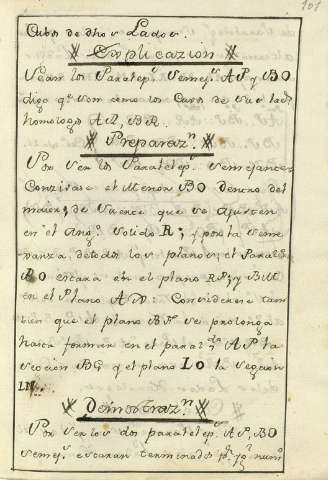 101
Cubos de dhos Lados.
Explicazion
Sean los Paralep.s Semej.s AP, y BO
digo q.e son como los Cubos de sus lad.s
homologos AR, BR.
Preparaz.n
Por ser los Paralelep.s semejantes
Conzivase el Menor BO dentro del
maior, de suerte que se ajusten
en el Ang.o solido R; y por la seme
janza de todos los planos, el Paralel.o
RO estara en el plano RP; y BM
en el Plano AN. Considerese tam
bien que el plano BF se prolonga
hasta formar en el paral.do AP la
seccion BG y el plano LO la seczion
LN.
Demostraz.n
Por ser los dos paralelep.s AP, BO
semej.s estaran terminados p.r y.l num.o